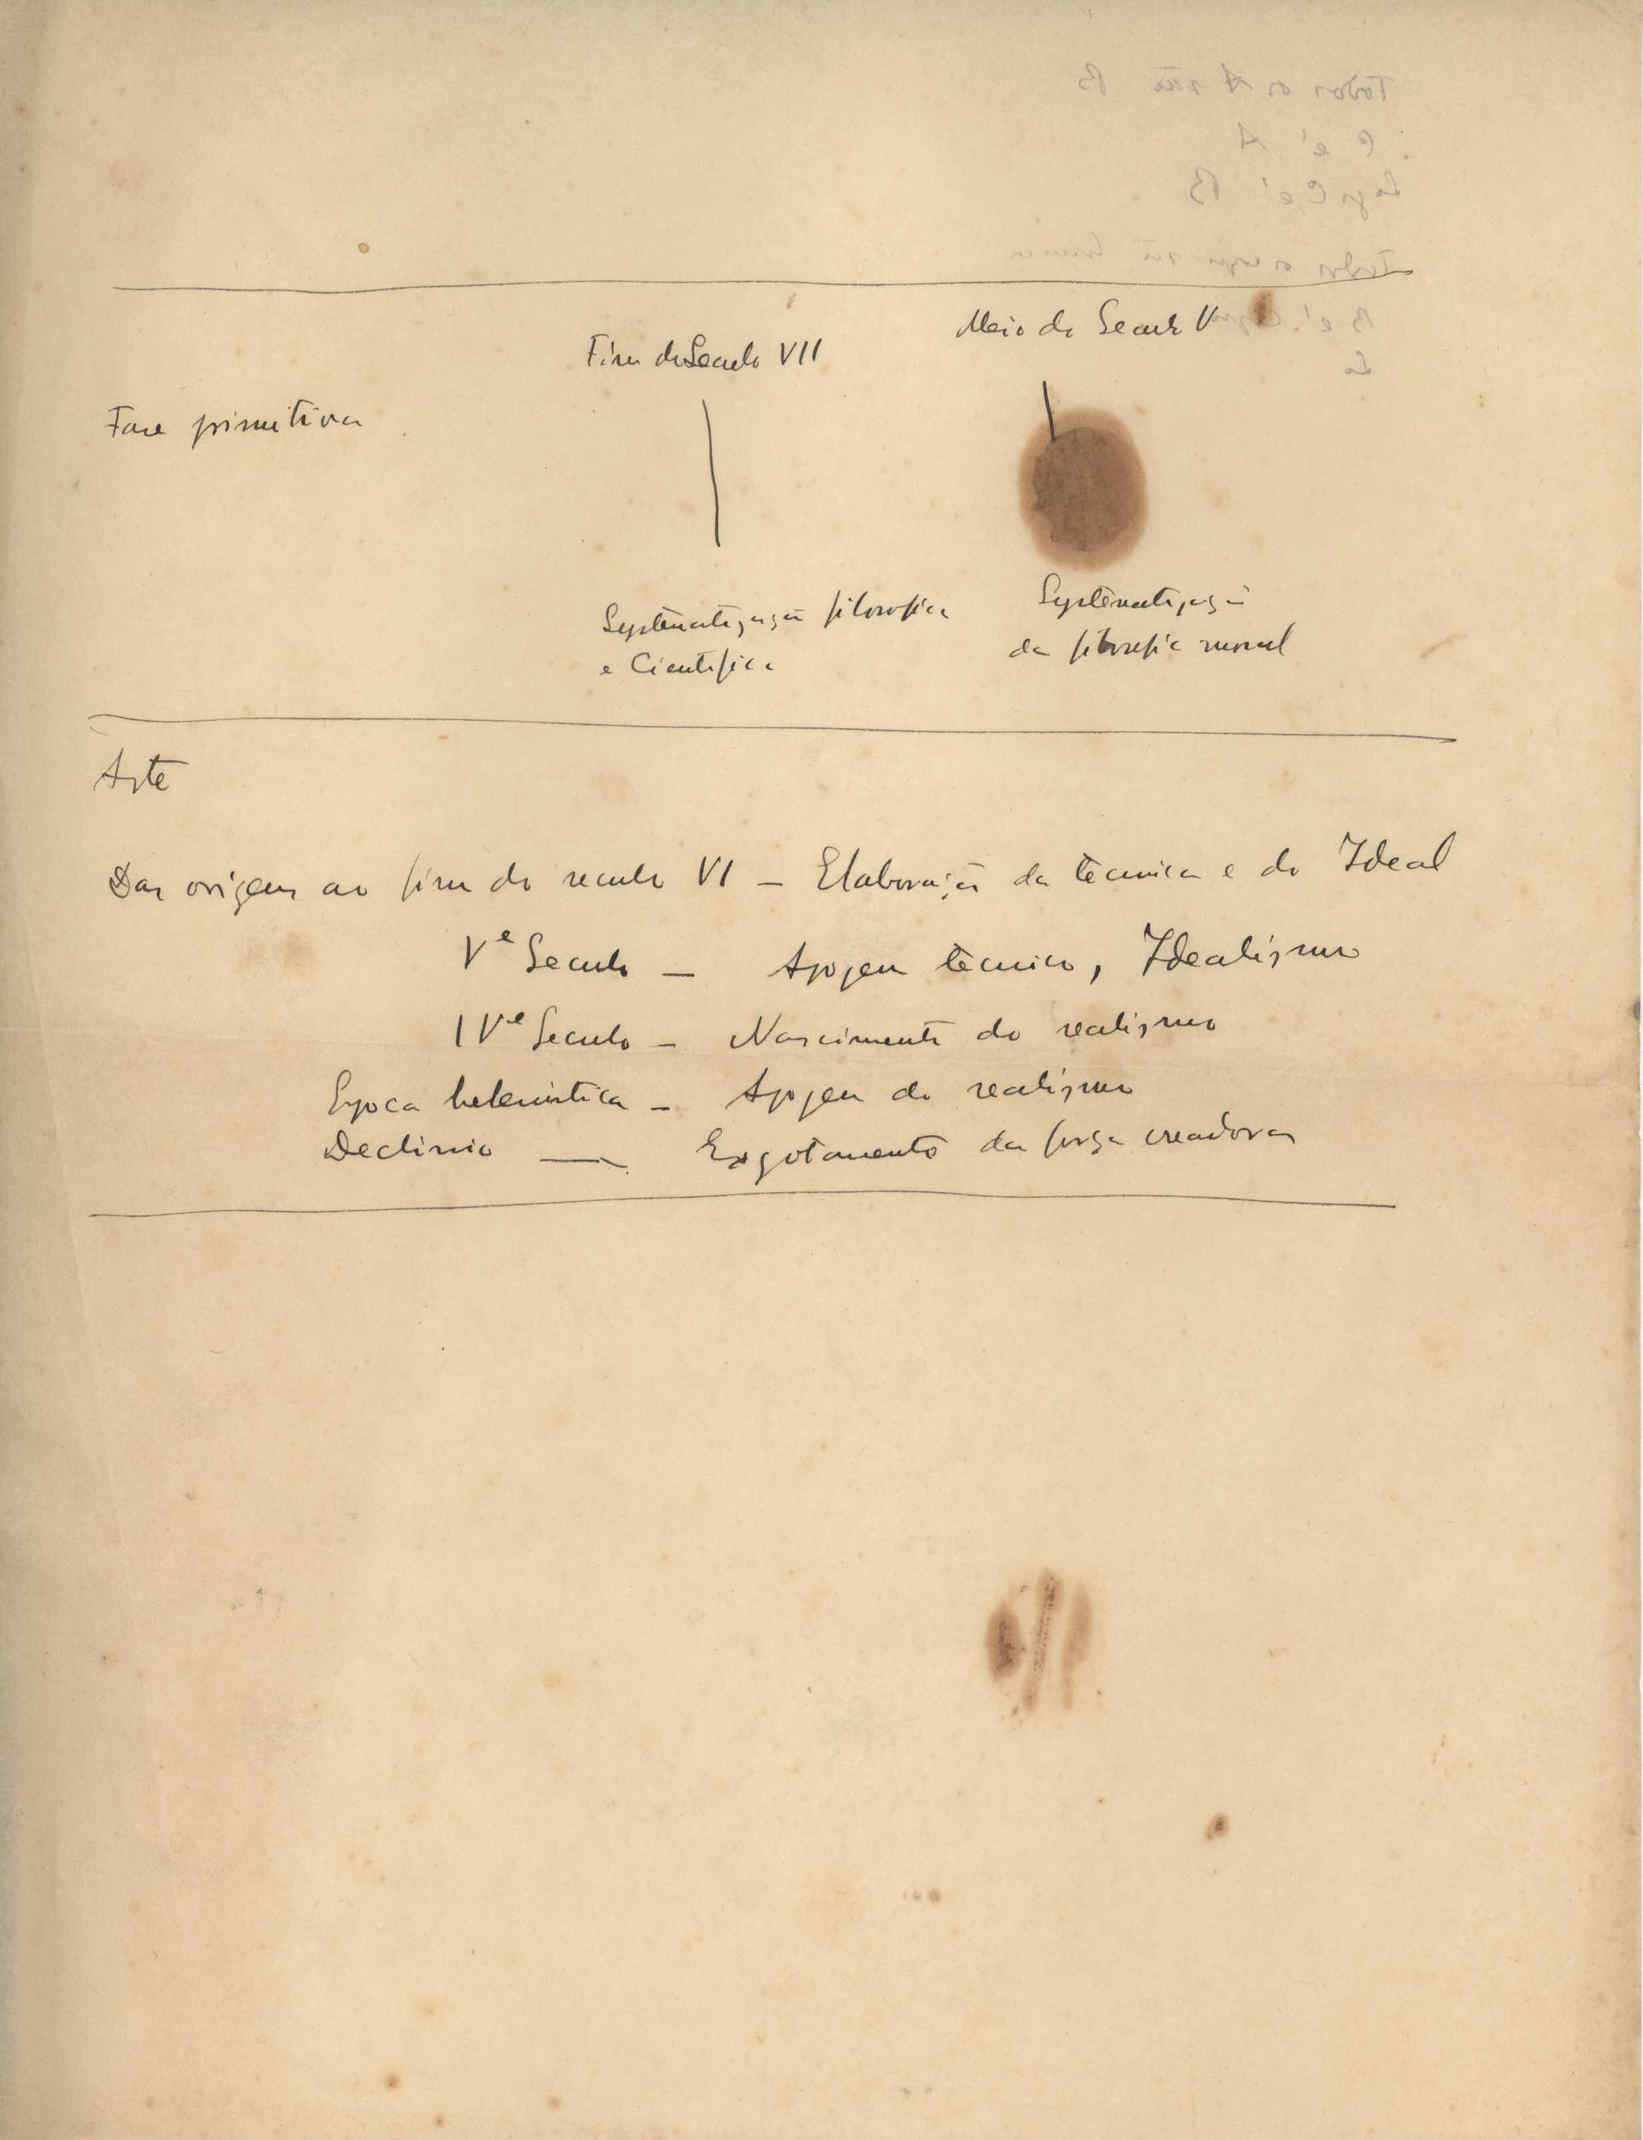 Meio do Seculo V
Fim do Seculo VII
Fase primitiva
Systematização filosofica
e Cientifica
Systematização
da filosofia moral
Arte
Das origens ao fim do seculo VI — Elaboração da tecnica e do Ideal
Vº Seculo — Apogeu tecnico, Idealismo
IVº Seculo — Nascimento do realismo
Epoca helenistica — Apogeu do realismo
Declinio — Esgotamento da força creadora
Todos os A são B
C é A
Logo C é B